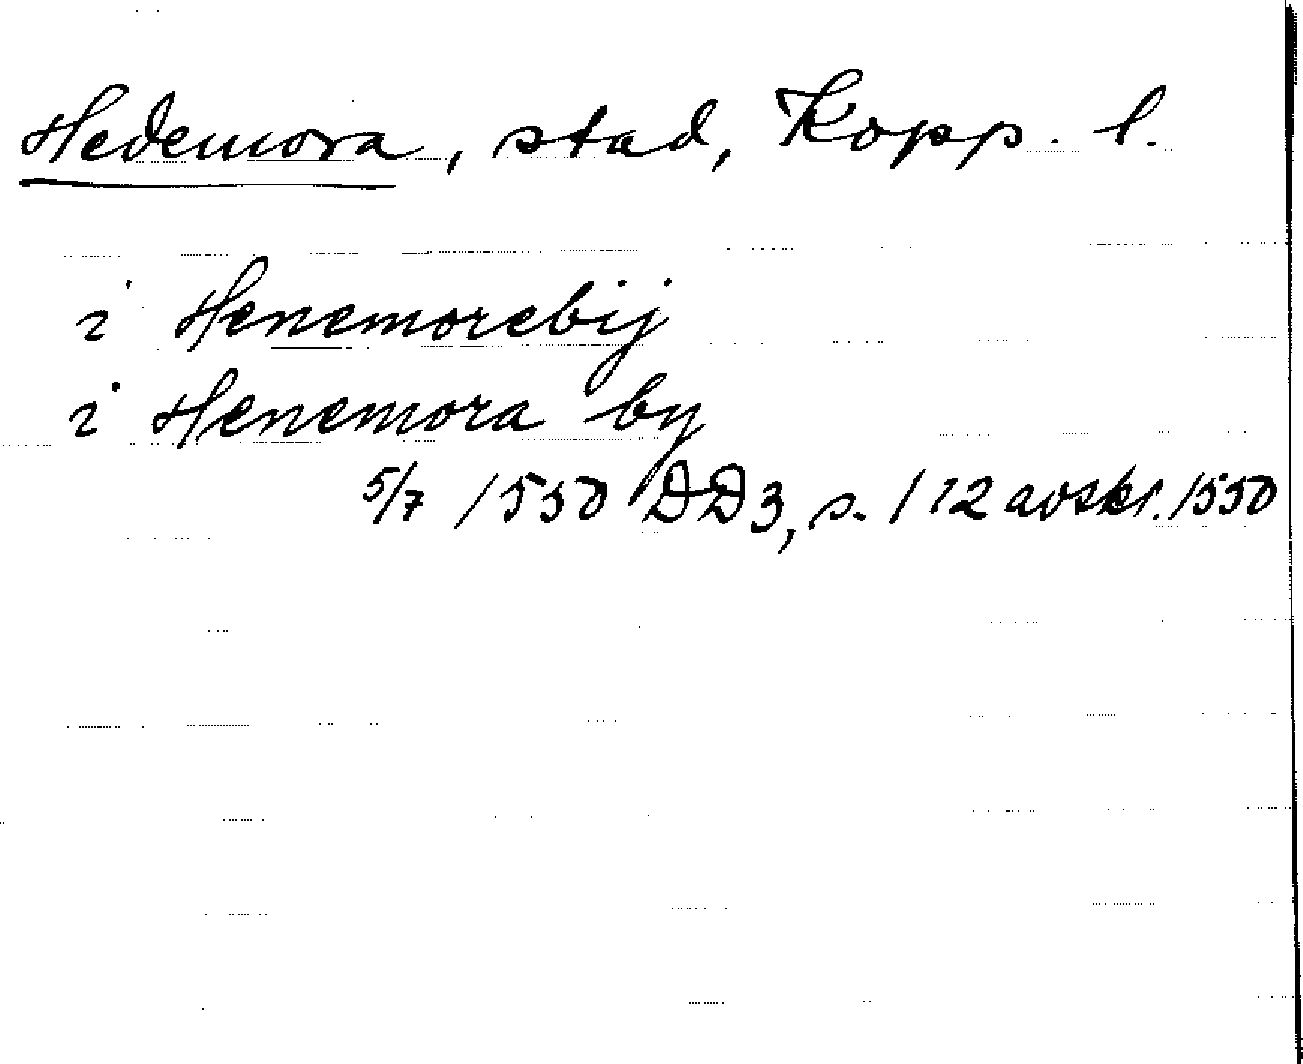 Hedemora, stad, Kopp. l.
i Henemorebij
i Henemora by
5/7 1550 DD3, s. 112 avskr. 1550